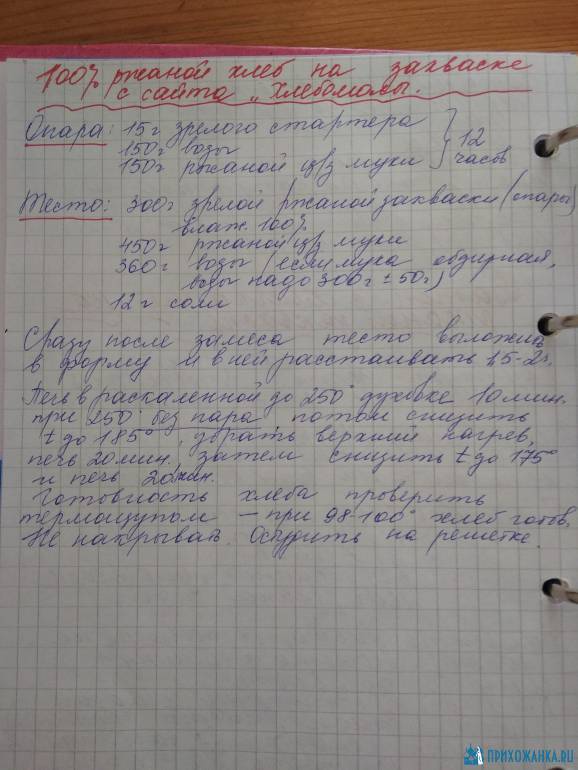 100% ржаной хлеб на закваске
с сайта „Хлебомолы.
Опара: 15 г зрелого стартера
150 г воды
150 г ржаной ц/з муки
12
часов
Тесто: 300 г зрелой ржаной закваски (опары)
влаж. 100%
450 г ржаной ц/з муки
360 г воды (если мука обдирная,
воды надо 300 г ± 50 г)
12 г соли
Сразу после замеса тесто выложить
в форму и в ней расстаивать 1,5-2 ч.
Печь в раскаленной до 250° духовке 10 мин.
при 250° без пара, потом снизить
t до 185°, убрать верхний нагрев,
печь 20 мин, затем снизить t до 175°
и печь 20 мин.
Готовность хлеба проверить
термощупом – при 98-100° хлеб готов.
Не накрывать. Остудить на решетке.
ПРИХОЖАНКА.RU